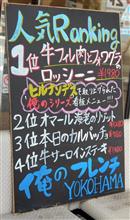 人気Ranking
1位 牛フィレ肉とフォアグラの
ロッシーニ ¥1480
俺のシリーズ看板メニュー!!!
2位 オマール海老の
3位 本日のカルパッチョ
4位 牛サーロインステーキ
俺のフレンチ
YOKOHAMA